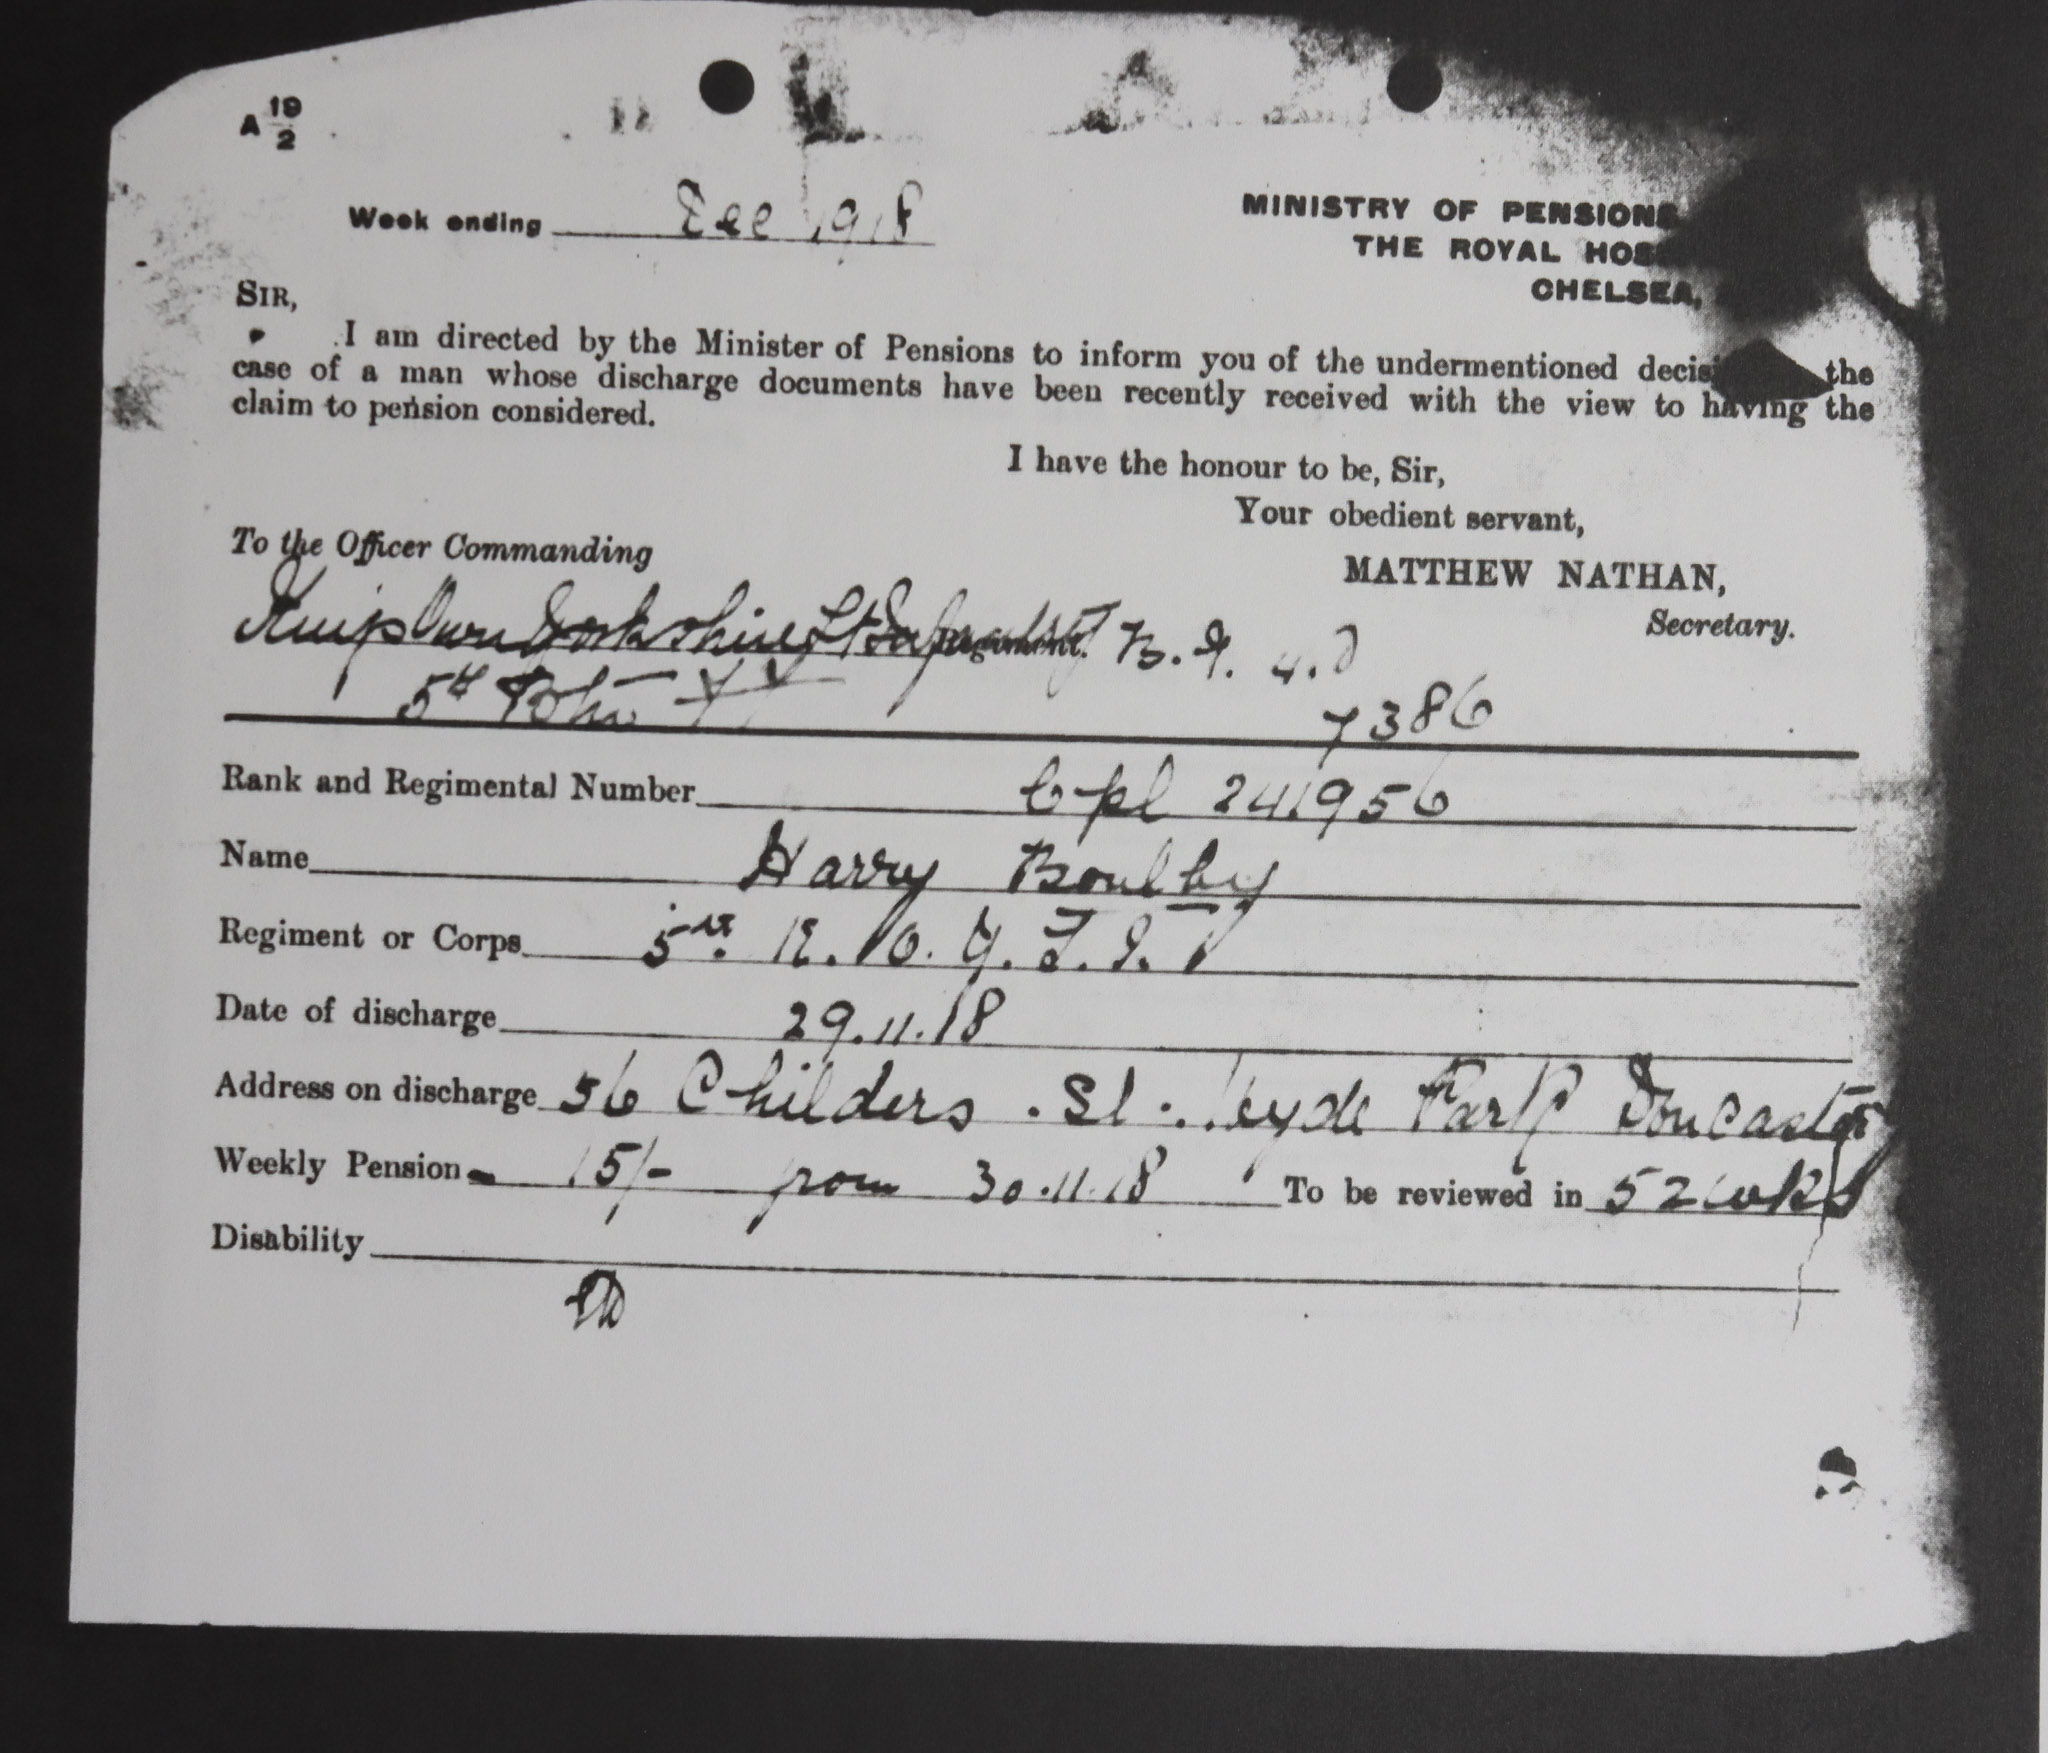 A 19/2
Week ending Dec 1918
MINISTRY OF PENSIONS
THE ROYAL HOS
CHELSEA,
SIR,
I am directed by the Minister of Pensions to inform you of the undermentioned decisi the
case of a man whose discharge documents have been recently received with the view to having the
claim to pension considered.
I have the honour to be, Sir,
Your obedient servant,
MATTHEW NATHAN,
Secretary.
To the Officer Commanding
Kings Own Yorkshire Lt Infantry Regiment.
5th Bttn
7386
Rank and Regimental Number Cpl 241956
Name Harry Boulby
Regiment or Corps 5th K.O.Y.L.I. T
Date of discharge 29.11.18
Address on discharge 56 Childers St. Hyde Park Doncaster
Weekly Pension 15/- from 30.11.18 To be reviewed in 52 wks
Disability